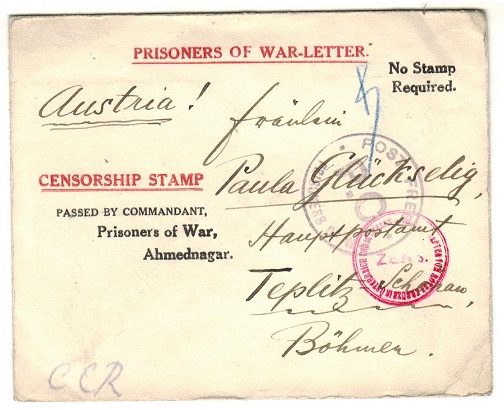 PRISONERS OF WAR-LETTER.
No Stamp
Required.
Austria!
Fräulein
CENSORSHIP STAMP
Paula Glückselig,
PASSED BY COMMANDANT,
Prisoners of War,
Ahmednagar.
Hauptpostamt
Teplitz Schönau
Böhmen.
ZENS.
CCR